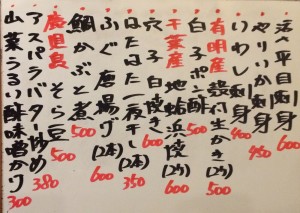 活〆平目刺身 600
やりいか刺身 450
いわし刺身 400
有明産 殻付生かき(2ケ) 500
白子ポン酢 600
千葉産 地蛤浜焼(2ケ) 600
穴子白焼き 600
はたはた一夜干し(2本) 350
ふぐ唐揚げ(2本) 600
鯛かぶと煮 500
鹿児島 そら豆 500
アスパラバター炒め 380
山菜うるい酢味噌かけ 300